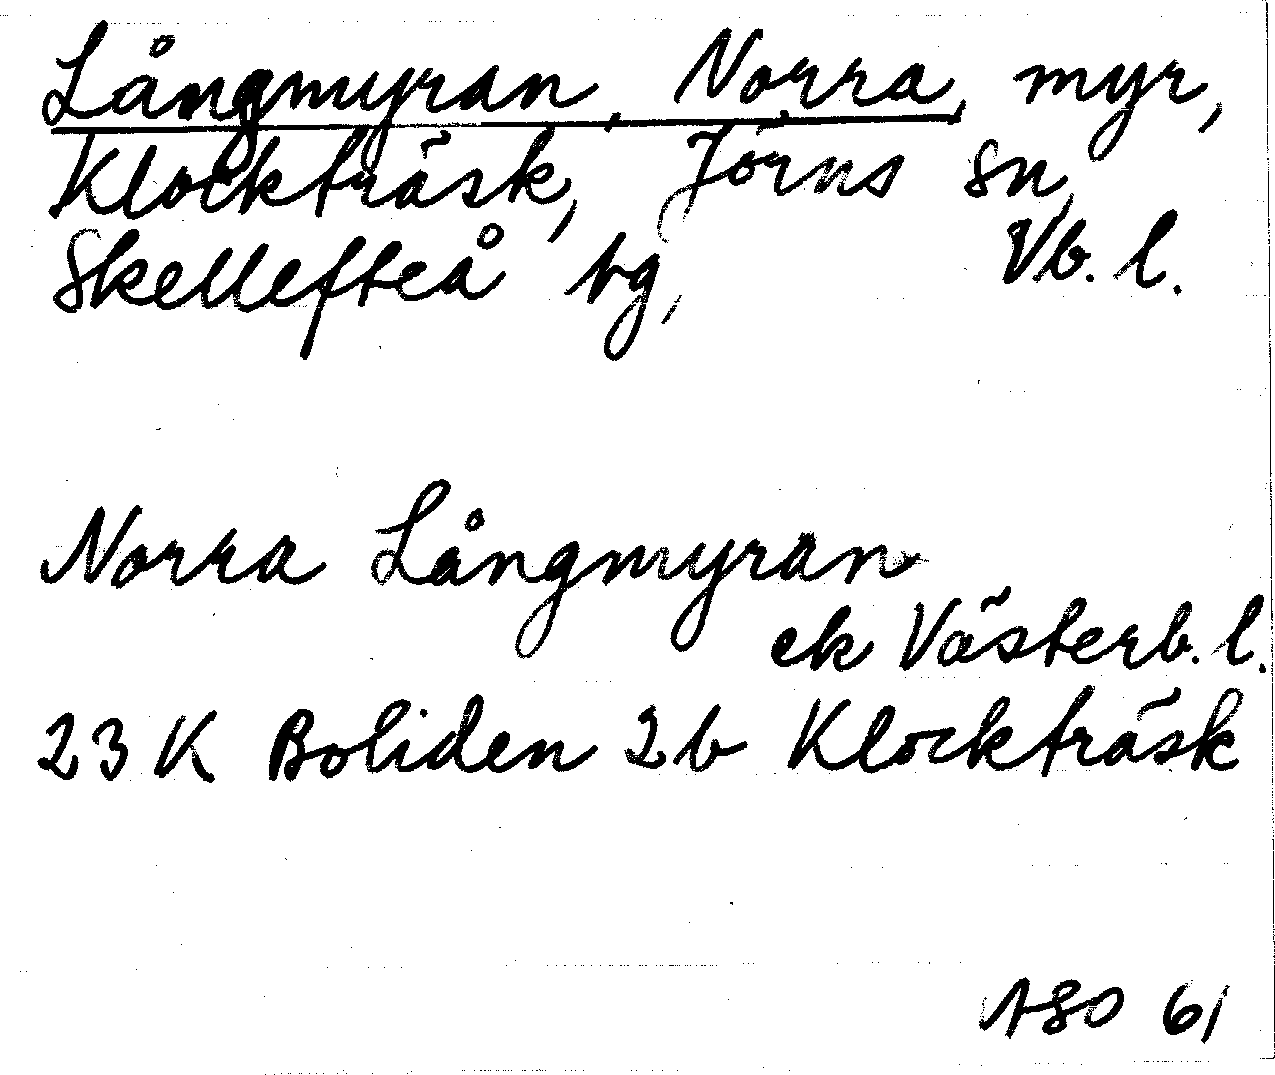 Långmyran, Norra, myr,
Klockträsk, Jörns sn,
Skellefteå tg, Vb. l.
Norra Långmyran
ek Västerb. l.
23 K Boliden 2 b Klockträsk
ASO 61